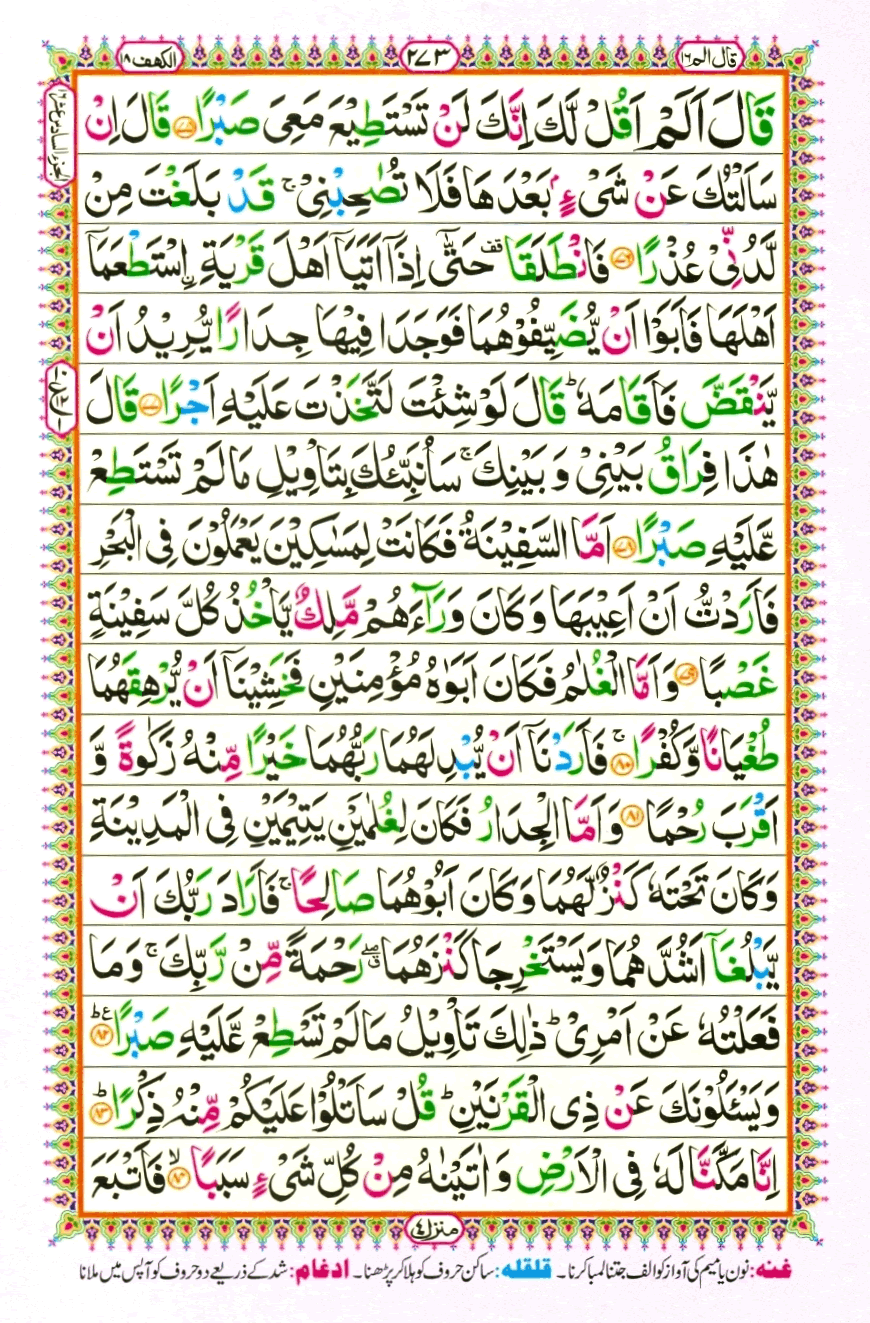 قال الم ١٦
٢٧٣
الكهف ١٨
الجزء السادس عشر ١٦
قَالَ اَلَمْ اَقُلْ لَّكَ اِنَّكَ لَنْ تَسْتَطِيْعَ مَعِىَ صَبْرًا ﴿٧٥﴾ قَالَ اِنْ
سَاَلْتُكَ عَنْ شَىْءٍۭ بَعْدَهَا فَلَا تُصٰحِبْنِىْ ۚ قَدْ بَلَغْتَ مِنْ
لَّدُنِّىْ عُذْرًا ﴿٧٦﴾ فَانْطَلَقَا ࣞ حَتّٰٓى اِذَاۤ اَتَيَاۤ اَهْلَ قَرْيَةِ ۨاسْتَطْعَمَاۤ
اَهْلَهَا فَاَبَوْا اَنْ يُّضَيِّفُوْهُمَا فَوَجَدَا فِيْهَا جِدَارًا يُّرِيْدُ اَنْ
يَّنْقَضَّ فَاَقَامَهٗ ؕ قَالَ لَوْ شِئْتَ لَتَّخَذْتَ عَلَيْهِ اَجْرًا ﴿٧٧﴾ قَالَ
هٰذَا فِرَاقُ بَيْنِىْ وَ بَيْنِكَ ۚ سَاُنَبِّئُكَ بِتَاْوِيْلِ مَا لَمْ تَسْتَطِعْ
عَّلَيْهِ صَبْرًا ﴿٧٨﴾ اَمَّا السَّفِيْنَةُ فَكَانَتْ لِمَسٰكِيْنَ يَعْمَلُوْنَ فِى الْبَحْرِ
فَاَرَدْتُّ اَنْ اَعِيْبَهَا وَ كَانَ وَرَآءَهُمْ مَّلِكٌ يَّاْخُذُ كُلَّ سَفِيْنَةٍ
غَصْبًا ﴿٧٩﴾ وَ اَمَّا الْغُلٰمُ فَكَانَ اَبَوٰهُ مُؤْمِنَيْنِ فَخَشِيْنَاۤ اَنْ يُّرْهِقَهُمَا
طُغْيَانًا وَّ كُفْرًا ﴿٨٠﴾ ۚ فَاَرَدْنَاۤ اَنْ يُّبْدِلَهُمَا رَبُّهُمَا خَيْرًا مِّنْهُ زَكٰوةً وَّ
اَقْرَبَ رُحْمًا ﴿٨١﴾ وَ اَمَّا الْجِدَارُ فَكَانَ لِغُلٰمَيْنِ يَتِيْمَيْنِ فِى الْمَدِيْنَةِ
وَ كَانَ تَحْتَهٗ كَنْزٌ لَّهُمَا وَ كَانَ اَبُوْهُمَا صَالِحًا ۚ فَاَرَادَ رَبُّكَ اَنْ
يَّبْلُغَاۤ اَشُدَّهُمَا وَ يَسْتَخْرِجَا كَنْزَهُمَا ۖ رَحْمَةً مِّنْ رَّبِّكَ ۚ وَ مَا
فَعَلْتُهٗ عَنْ اَمْرِىْ ؕ ذٰلِكَ تَاْوِيْلُ مَا لَمْ تَسْطِعْ عَّلَيْهِ صَبْرًا ﴿٨٢﴾ ؕع
وَ يَسْـَٔلُوْنَكَ عَنْ ذِى الْقَرْنَيْنِ ؕ قُلْ سَاَتْلُوْا عَلَيْكُمْ مِّنْهُ ذِكْرًا ﴿٨٣﴾ ؕ
اِنَّا مَكَّنَّا لَهٗ فِى الْاَرْضِ وَ اٰتَيْنٰهُ مِنْ كُلِّ شَىْءٍ سَبَبًا ﴿٨٤﴾ ۙ فَاَتْبَعَ
منزل ٤
غنه: نون یا میم کی آواز کو الف جتنا لمبا کرنا۔ قلقله: ساکن حروف کو ہلا کر پڑھنا۔ ادغام: شد کے ذریعے دو حروف کو آپس میں ملانا